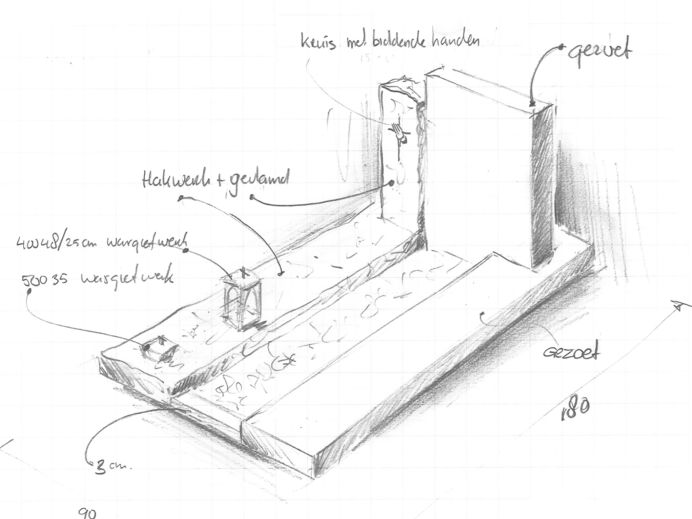 Kruis met biddende handen
gezoet
Hakwerk + gevlamd
400 48/25cm wasgietwerk
500 35 wasgietwerk
GEZOET
180
3 cm.
90